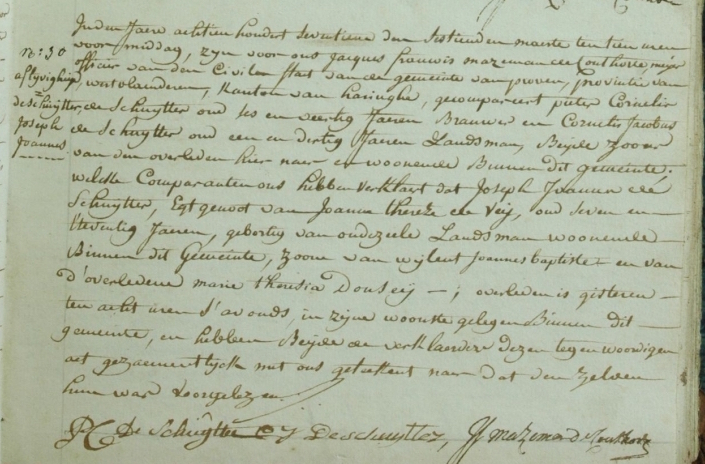 In den Jaere achtien hondert seventiene den sestienden maerte ten tien uren
voor middag, zyn voor ons Jacques francois mazeman de Couthove, mayer
officier van den Civilen staet van de gemeente van proven, provintie van
n: 30 westvlanderen, kanton van haringhe, gecompareert pieter Cornelis
aflyvighijd de Schuytter oud ses en veertig Jaeren Brouwer en Cornelis Jacobus
de Schuytter, de Schuytter oud een en dertig Jaeren Landsman, Beijde zoons
Joseph van den overleden hier naer en woonende Binnen dit gemeente.
Joannes welcke Comparanten ons hebben verklaert dat Joseph Joannes de
Schuytter, Egtgenoot van Joanna thereze de Veij, oud seven en
tseventig Jaeren, gebortig van oudezeele Landsman woonende
Binnen dit Gemeente, zoone van wijlent Joannes baptiste en van
d'overledene marie theresia Douseij - ; overleden is gisteren
ten acht uren S'avonds, in zijne woonste gelegen Binnen dit
gemeente, en hebben Beijde de verklaerders dezen tegenwoordigen
act gezaementlijck met ons geteekent naer dat den zelven
hun was voorgelezen.
PC De Schuytter CJ De schuytter, JF mazeman de Couthove